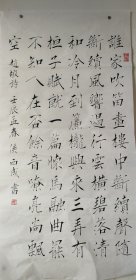 誰家吹笛畫樓中斷續聲隨
斷續風響遏行雲橫碧落清
和冷月到簾櫳興來三弄有
桓子賦就一篇懷馬融曲罷
不知人在否餘音嘹亮尚飄
空 趙嘏詩 壬辰孟春 書